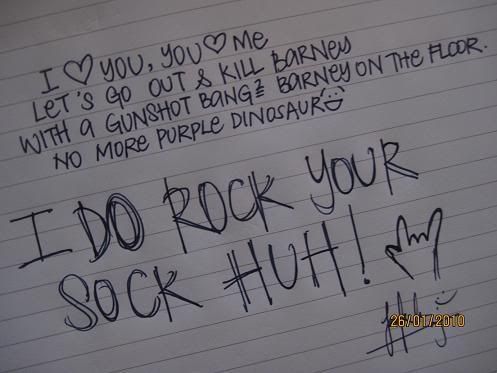 I ♡ YOU, YOU ♡ ME
LET'S GO OUT & KILL BARNEY
WITH A GUNSHOT BANG & BARNEY ON THE FLOOR.
NO MORE PURPLE DINOSAUR
I DO ROCK YOUR
SOCK HUH!
26/01/2010